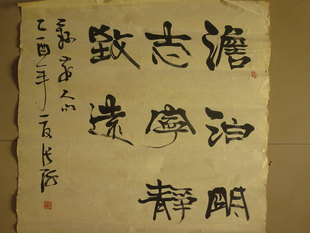 澹泊明
志寧靜
致遠
乙酉年夏